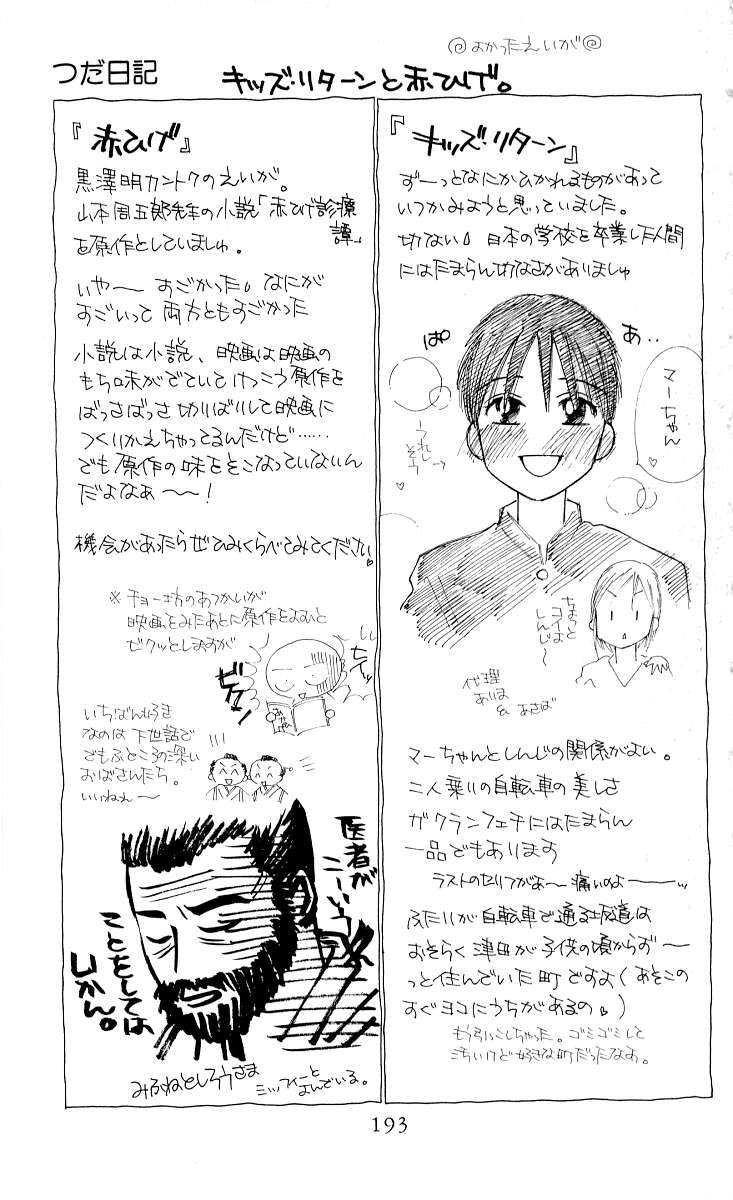 ◎よかったえいが◎
つだ日記
キッズ・リターンと赤ひげ。
『キッズ・リターン』
ずーっとなにかひかれるものがあって
いつかみようと思っていました。
切ない。日本の学校を卒業した人間
にはたまらん切なさがありましゅ
あ‥
ぱ
マーちゃん
うれし
そう
→
♡
ちょっと
コイよ
しんじ〜
代理
おりは
& あさば
マーちゃんとしんじの関係がよい。
二人乗りの自転車の美しさ
ガクランフェチにはたまらん
一品でもあります
ラストのセリフがよ〜痛いのよーーー…
ふたりが自転車で通る坂道は
おそらく津田が子供の頃からず〜
っと住んでいた町ですよ(あそこの
すぐヨコにうちがあるの♡)
もう引っこしちゃった。ゴミゴミして
汚いけど好きな町だったなお。
『赤ひげ』
黒澤明カントクのえいが。
山本周五郎先生の小説「赤ひげ診療
譚」
を原作としていましゅ。
いや〜 すごかった。なにが
すごいって両方ともすごかった
小説は小説、映画は映画の
もち味がでていてけっこう原作を
ばっさばっさ切りばりして映画に
つくりかえちゃってるんだけど……
でも原作の味をそこなっていないん
だよなぁ〜〜!
機会があったらぜひみくらべてみてください♡
※チョー坊のあつかいが
映画をみたあとに原作をよむと
ビクッとしますが
ヒイッ
ビクッ!
いちばん好き
なのは下世話で
でもふところの深い
おばさんたち。
いいねえ〜
医者が
こーゆう
ことをしては
いかん。
みふねとしろうさま
ミッフィーと
よんでいる。
193